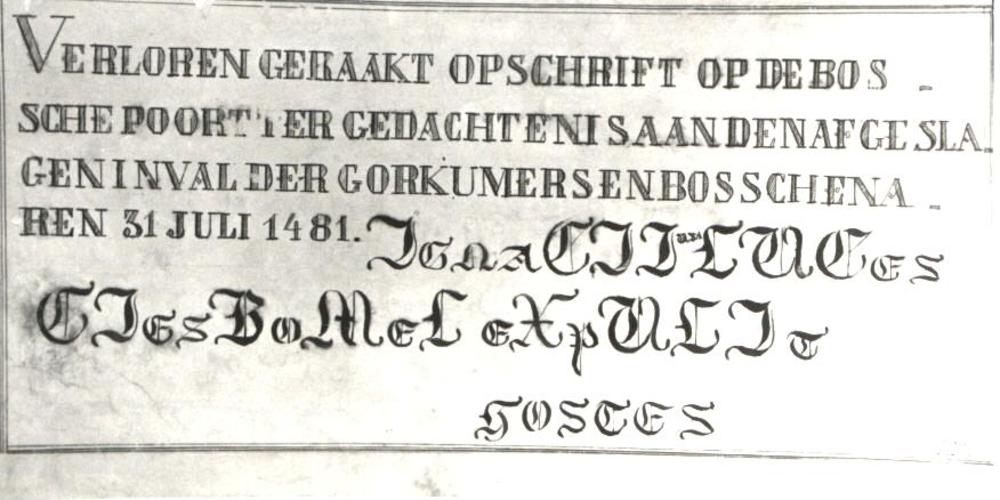 VERLOREN GERAAKT OPSCHRIFT OP DE BOS -
SCHE POORT TER GEDACHTENIS AAN DEN AFGESLA-
GEN INVAL DER GORKUMERS EN BOSSCHENA -
REN 31 JULI 1481. IGnACII LUCes
CIesBoMeL eXpULIt
HOSTES